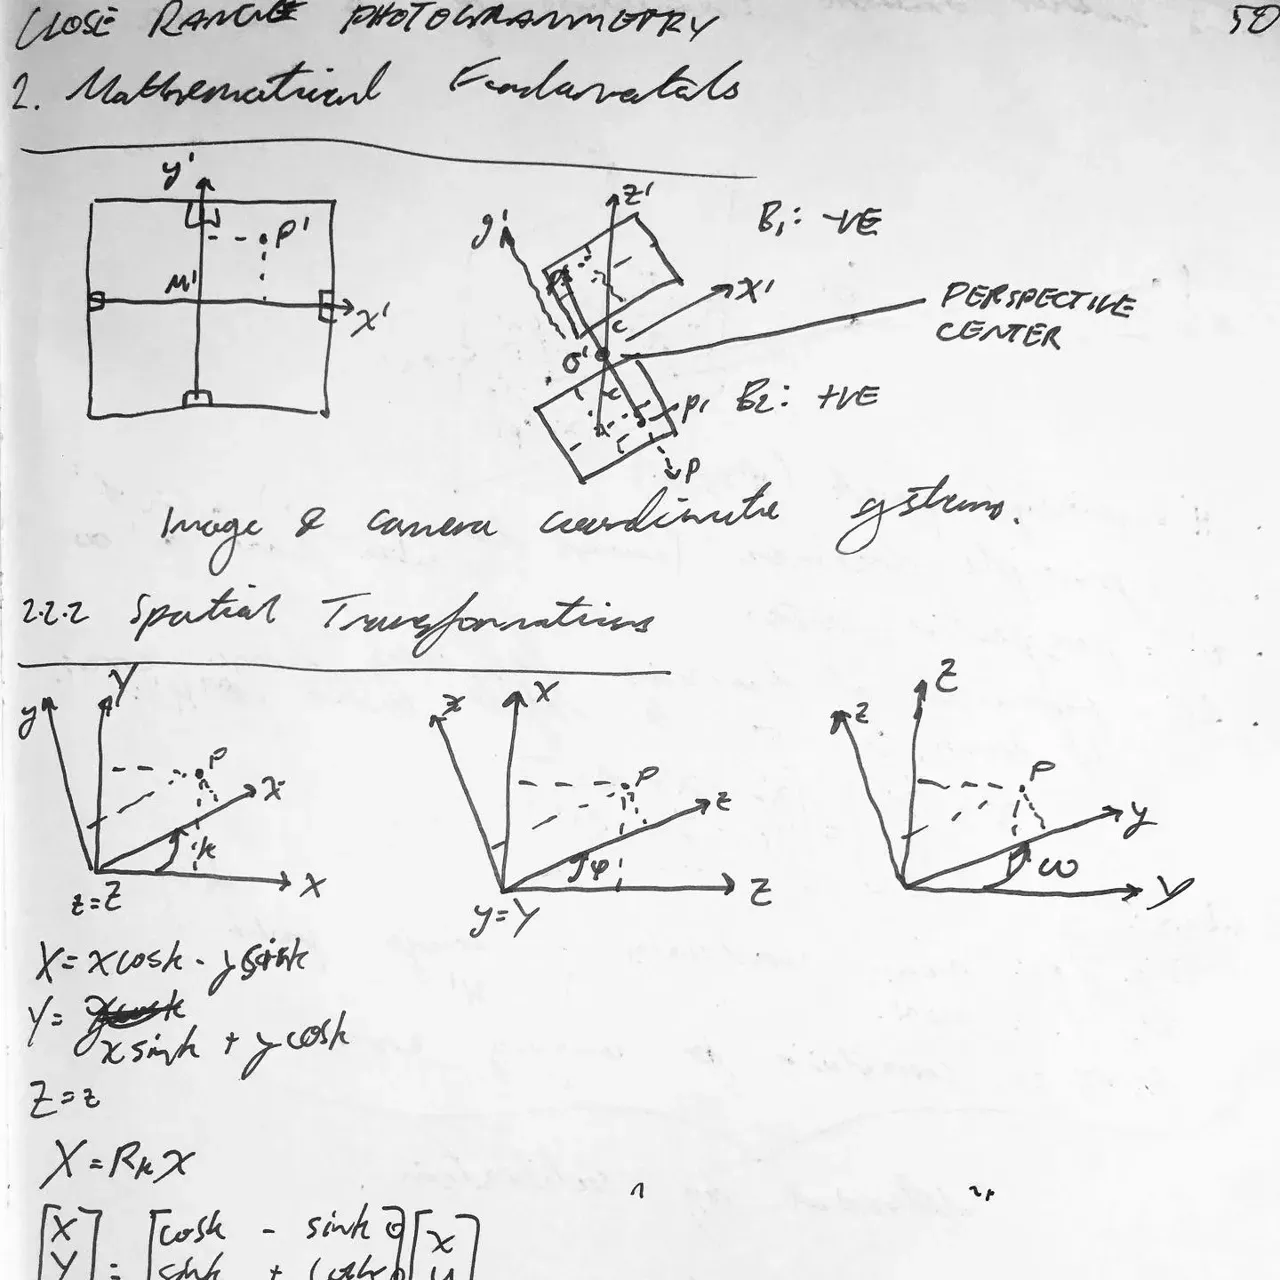 CLOSE RANGE PHOTOGRAMMETRY 50
2. Mathematical Fundamentals
y'
P'
M'
x'
z'
y'
B1: -VE
x'
c
PERSPECTIVE
CENTER
O'
c
P' B2: +VE
P
Image & camera coordinate systems.
2.2.2 Spatial Transformations
y Y
P
x
k
X
z=Z
x X
P
z
φ
Z
y=Y
z Z
P
y
ω
Y
X = x cosk - y sink
Y =
x sink + y cosk
Z = z
X = Rk x
[X] [cosk - sink 0] [x]
[Y] = [sink + cosk 0] [y]